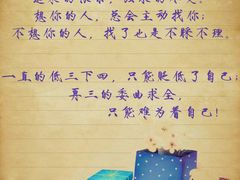 想你的人，总会主动找你；
不想你的人，找了也是不睬不理。
一直的低三下四，只能贬低了自己；
再三的委曲求全，
只能难为着自己！